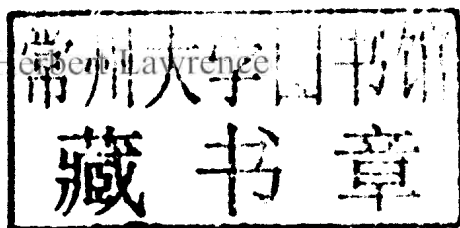 常州大学图书馆
Herbert Lawrence
藏书章